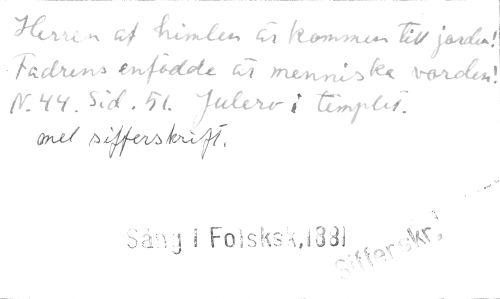 Herren af himlen är kommen till jorden!
Fadrens enfödde är menniska vorden!
N. 44. Sid. 51. Julen i templet.
mel sifferskrift.
Sång i Folsksk,1881
Sifferskr.